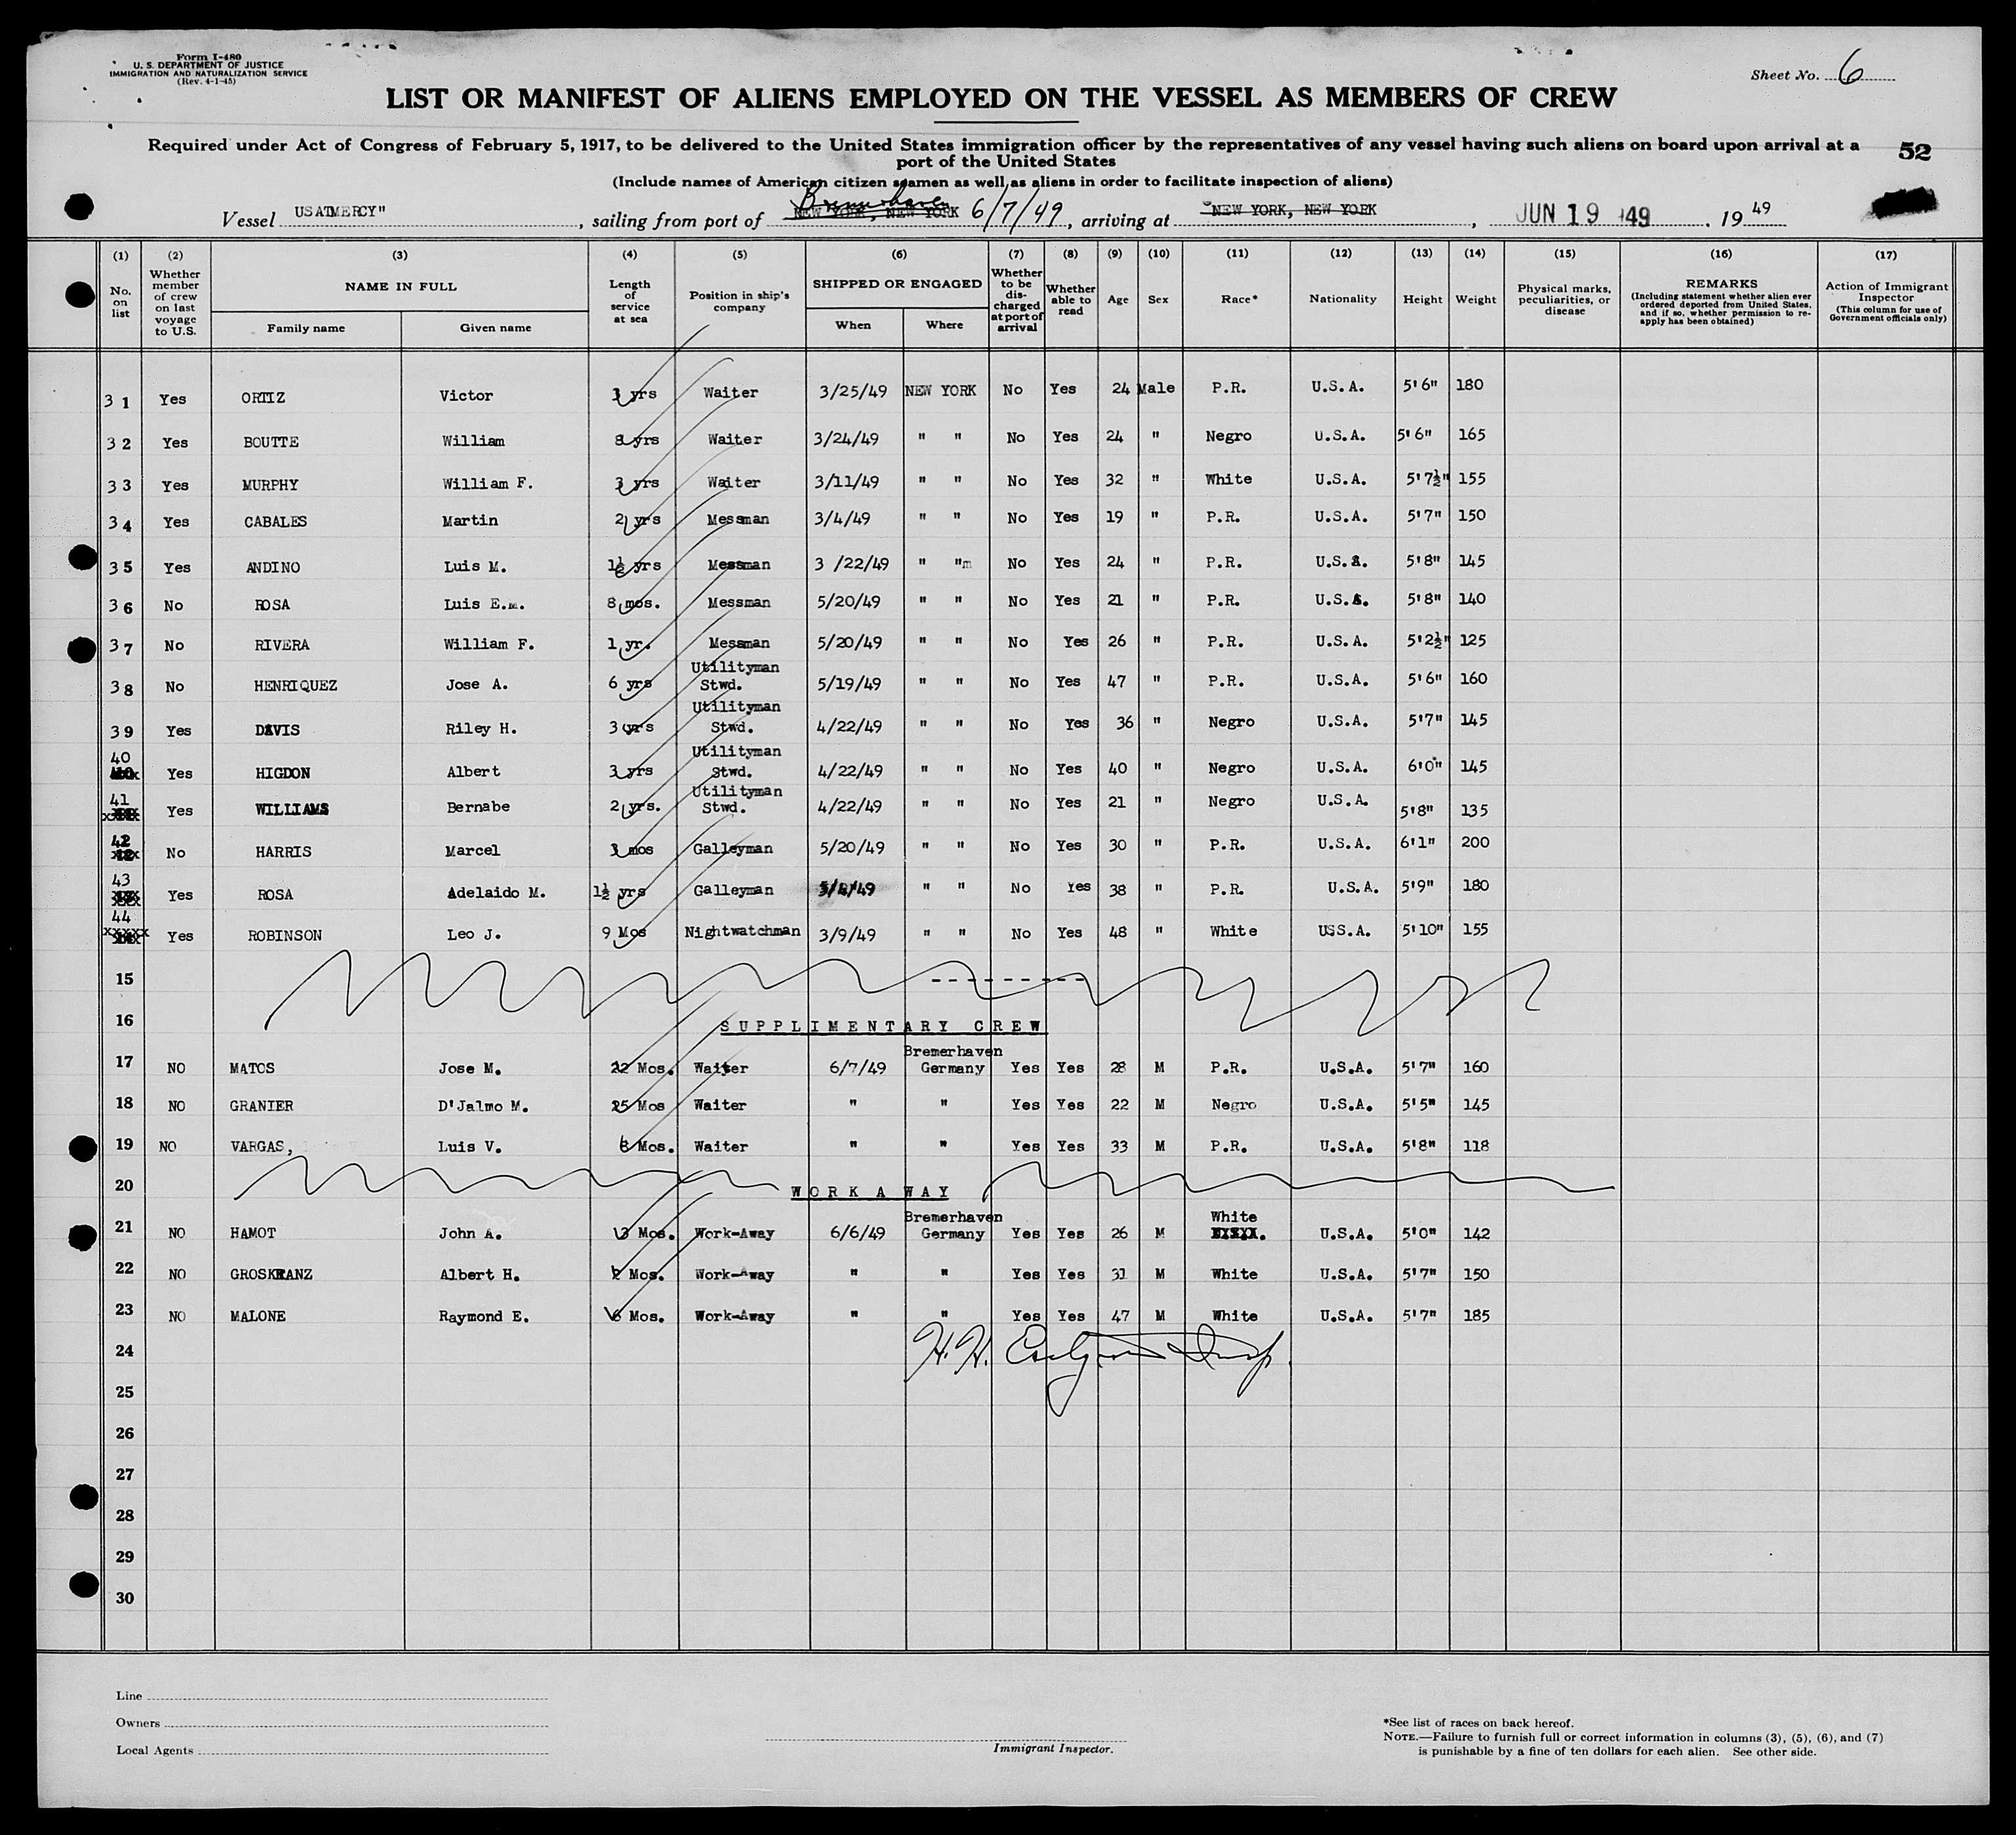 Form I-480
U. S. DEPARTMENT OF JUSTICE
IMMIGRATION AND NATURALIZATION SERVICE
(Rev. 4-1-45)
Sheet No. 6
LIST OR MANIFEST OF ALIENS EMPLOYED ON THE VESSEL AS MEMBERS OF CREW
Required under Act of Congress of February 5, 1917, to be delivered to the United States immigration officer by the representatives of any vessel having such aliens on board upon arrival at a
port of the United States
52
(Include names of American citizen seamen as well as aliens in order to facilitate inspection of aliens)
Bremerhaven
Vessel USATMERCY" , sailing from port of NEW YORK, NEW YORK 6/7/49, arriving at NEW YORK, NEW YORK , JUN 19 '49 , 19 49
(1) (2) (3) (4) (5) (6) (7) (8) (9) (10) (11) (12) (13) (14) (15) (16) (17)
No. on list Whether member of crew on last voyage to U.S. NAME IN FULL Family name Given name Length of service at sea Position in ship's company SHIPPED OR ENGAGED When Where Whether to be discharged at port of arrival Whether able to read Age Sex Race* Nationality Height Weight Physical marks, peculiarities, or disease REMARKS (Including statement whether alien ever ordered deported from United States, and if so, whether permission to re-apply has been obtained) Action of Immigrant Inspector (This column for use of Government officials only)
31 Yes ORTIZ Victor 3 yrs Waiter 3/25/49 NEW YORK No Yes 24 Male P.R. U.S.A. 5'6" 180
32 Yes BOUTTE William 8 yrs Waiter 3/24/49 " " No Yes 24 " Negro U.S.A. 5'6" 165
33 Yes MURPHY William F. 3 yrs Waiter 3/11/49 " " No Yes 32 " White U.S.A. 5'7½" 155
34 Yes CABALES Martin 2 yrs Messman 3/4/49 " " No Yes 19 " P.R. U.S.A. 5'7" 150
35 Yes ANDINO Luis M. 1½ yrs Messman 3 /22/49 " "m No Yes 24 " P.R. U.S.A. 5'8" 145
36 No ROSA Luis E.m. 8 mos. Messman 5/20/49 " " No Yes 21 " P.R. U.S.A. 5'8" 140
37 No RIVERA William F. 1 yr. Messman 5/20/49 " " No Yes 26 " P.R. U.S.A. 5'2½" 125
38 No HENRIQUEZ Jose A. 6 yrs Utilityman Stwd. 5/19/49 " " No Yes 47 " P.R. U.S.A. 5'6" 160
39 Yes DAVIS Riley H. 3 yrs Utilityman Stwd. 4/22/49 " " No Yes 36 " Negro U.S.A. 5'7" 145
40 Yes HIGDON Albert 3 yrs Utilityman Stwd. 4/22/49 " " No Yes 40 " Negro U.S.A. 6'0" 145
41 Yes WILLIAMS Bernabe 2 yrs. Utilityman Stwd. 4/22/49 " " No Yes 21 " Negro U.S.A. 5'8" 135
42 No HARRIS Marcel 3 mos Galleyman 5/20/49 " " No Yes 30 " P.R. U.S.A. 6'1" 200
43 Yes ROSA Adelaido M. 1½ yrs Galleyman " " No Yes 38 " P.R. U.S.A. 5'9" 180
44 Yes ROBINSON Leo J. 9 Mos Nightwatchman 3/9/49 " " No Yes 48 " White USS.A. 5'10" 155
15 ---------
16 SUPPLIMENTARY CREW
17 NO MATOS Jose M. 22 Mos. Waiter 6/7/49 Bremerhaven Germany Yes Yes 28 M P.R. U.S.A. 5'7" 160
18 NO GRANIER D'Jalmo M. 25 Mos Waiter " " Yes Yes 22 M Negro U.S.A. 5'5" 145
19 NO VARGAS, Luis V. 6 Mos. Waiter " " Yes Yes 33 M P.R. U.S.A. 5'8" 118
20 WORK A WAY
21 NO HAMOT John A. 3 Mos. Work-Away 6/6/49 Bremerhaven Germany Yes Yes 26 M White U.S.A. 5'0" 142
22 NO GROSKRANZ Albert H. 2 Mos. Work-Away " " Yes Yes 31 M White U.S.A. 5'7" 150
23 NO MALONE Raymond E. 6 Mos. Work-Away " " Yes Yes 47 M White U.S.A. 5'7" 185
24 H.H. Insp.
25
26
27
28
29
30
Line
Owners
Local Agents
Immigrant Inspector.
*See list of races on back hereof.
NOTE.—Failure to furnish full or correct information in columns (3), (5), (6), and (7)
is punishable by a fine of ten dollars for each alien. See other side.